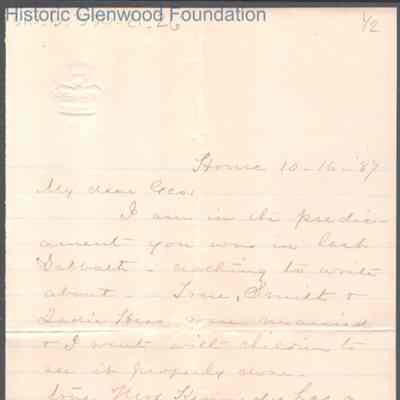 Historic Glenwood Foundation
1/2
Home 10-16-'87
My dear Geo.
I am in the predic-
ament you was in last
Sabbath - nothing to write
about - True, Smith &
Sadie Hess were married
& I went with children to
see it properly done.
Mrs Kennedy has a